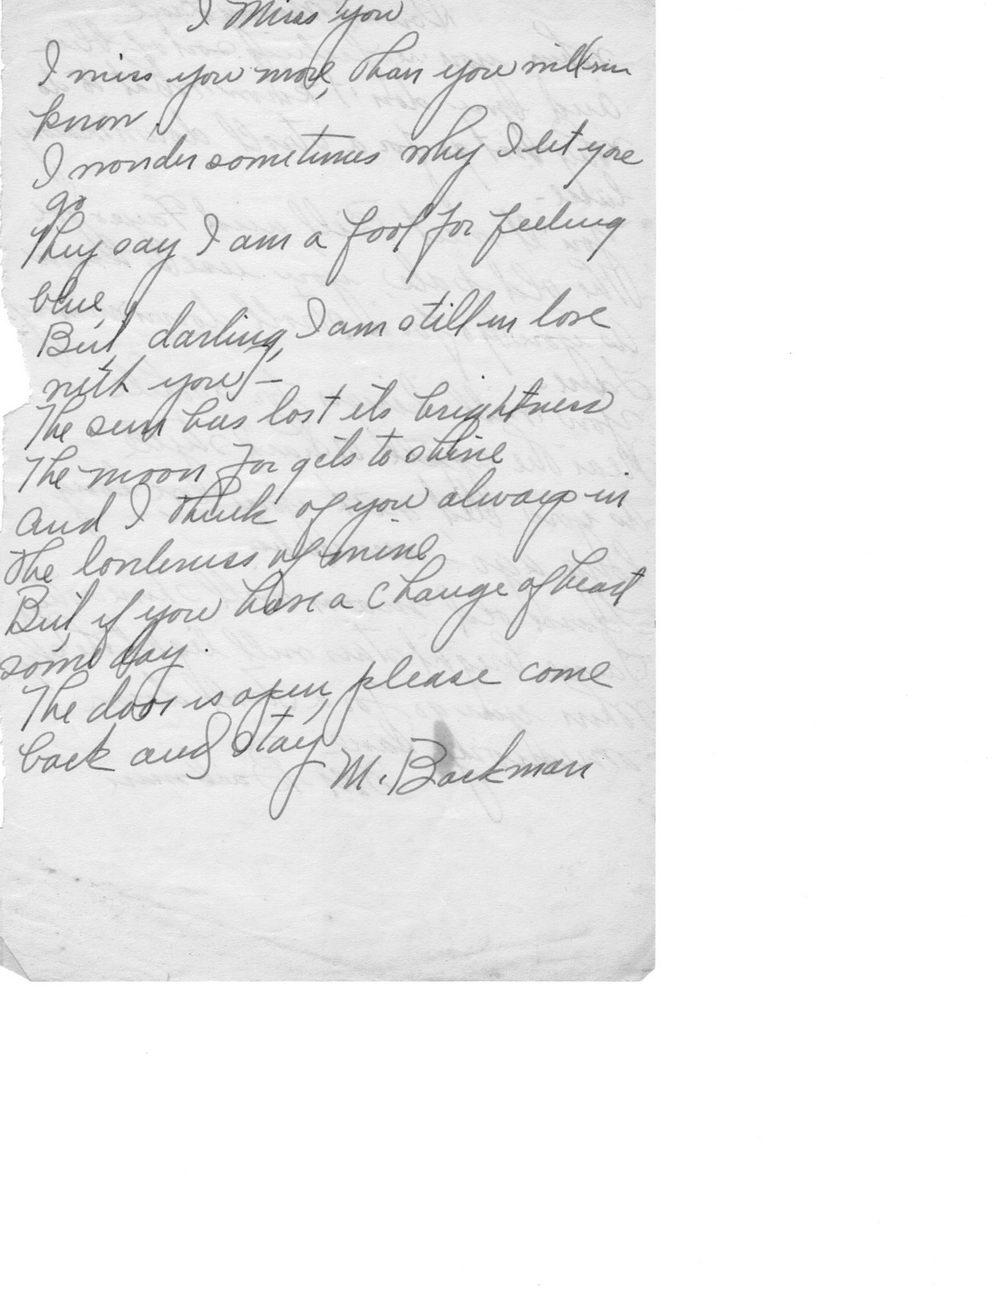 I Miss you
I miss you more, than you will
know,
I wonder sometimes why I let you
go
They say I am a fool for feeling
blue,
But darling, I am still in love
with you, –
The sun has lost its brightness
The moon forgets to shine
And I think of you always in
the lonleness of mine
But, if you have a change of heart
some day.
The door is open, please come
back and stay
M. Backman